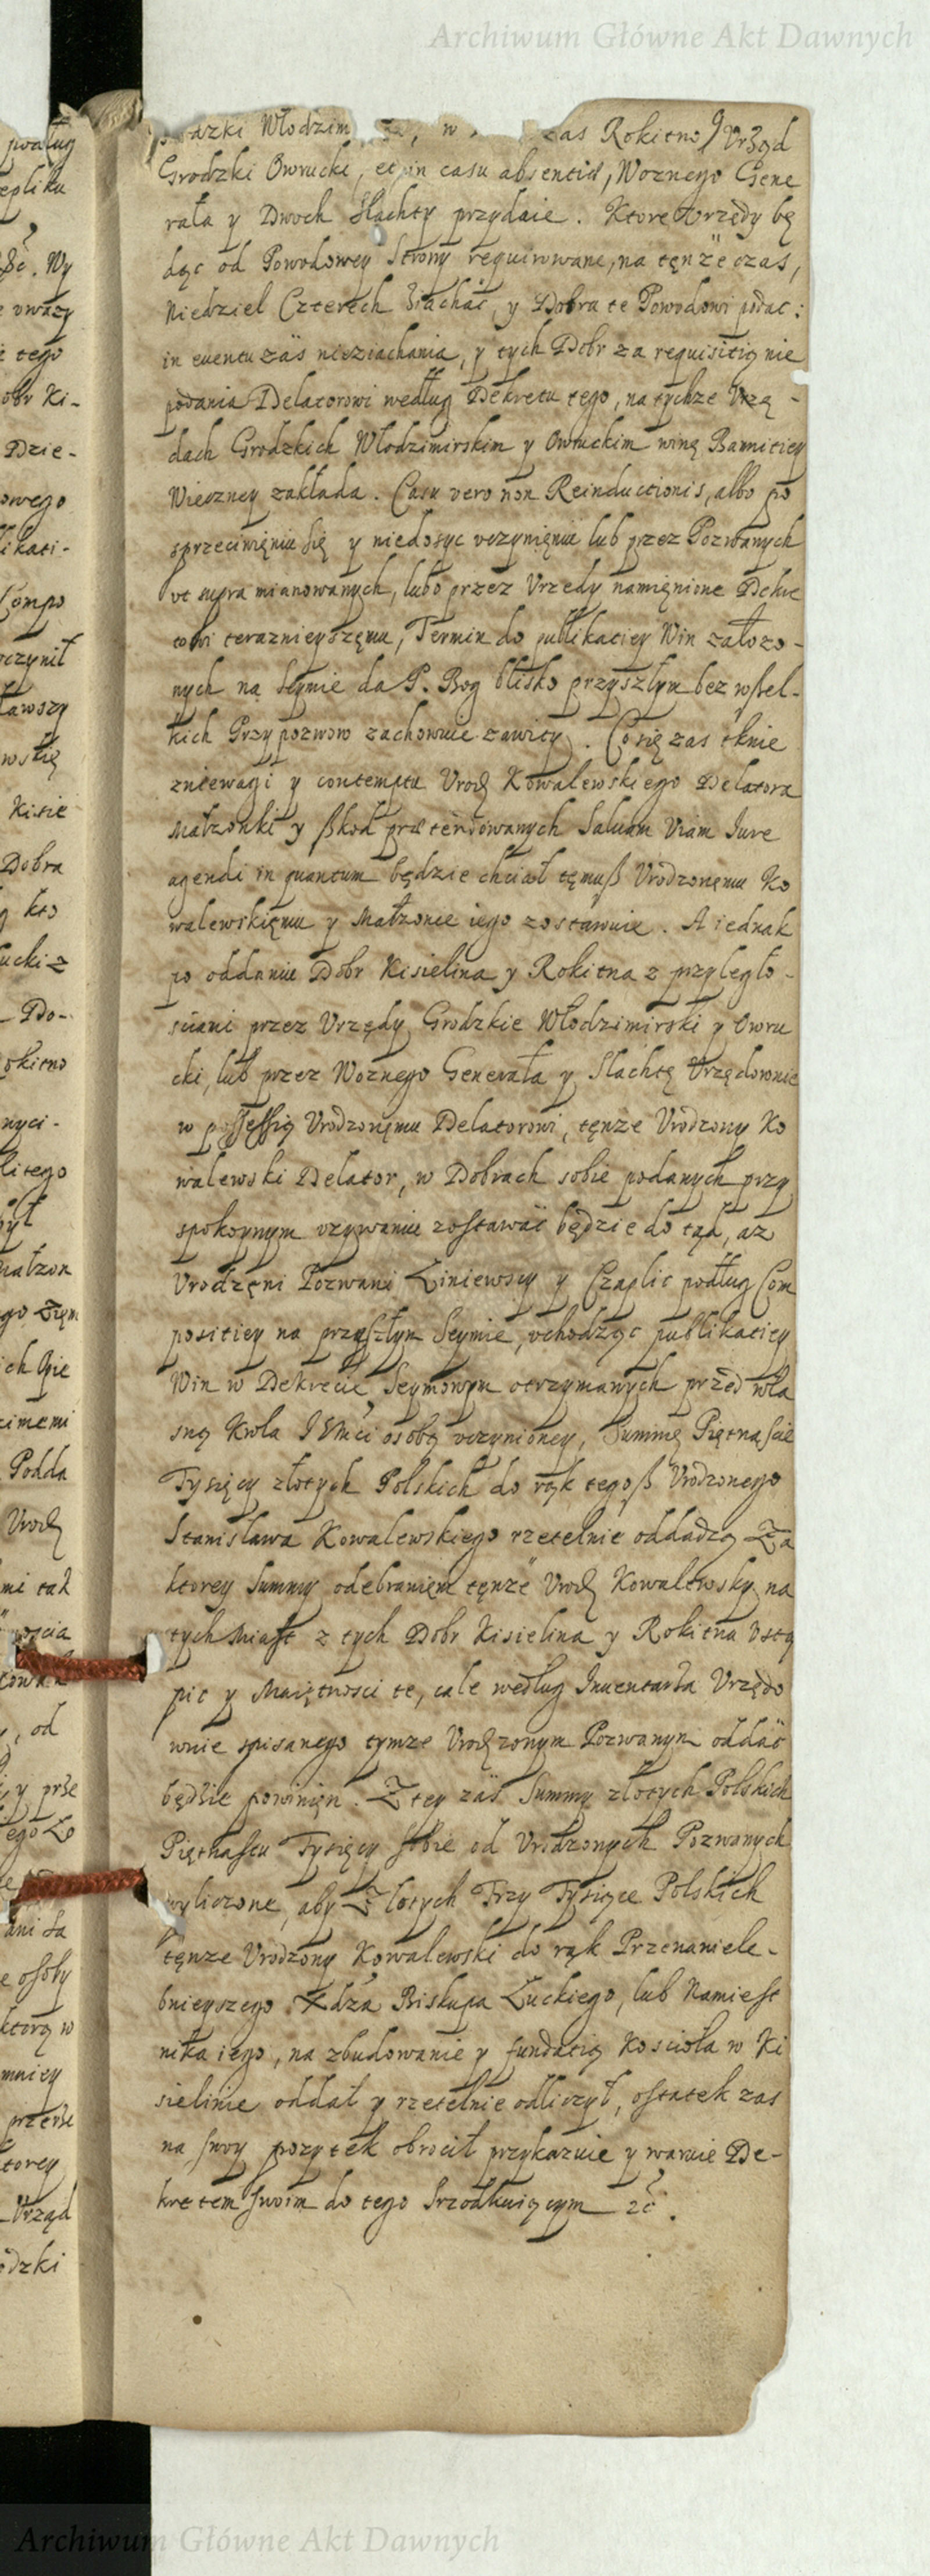 Archiwum Główne Akt Dawnych
dzki Włodzim w zas Rokitno Vrząd
Grodzki Owrucki, et in casu absentis, Woznego Gene
rała y Dwoch Slachty przydaie. Ktore Vrzędy bę
dąc od Powodowey Strony requirowane, na tęnże czas,
Niedziel Czterech ziachać, y Dobra te Powodowi podac:
in euentu zaś nieziachania, y tych Dobr za requisitią nie
podania Delatorowi według Dekretu tego, na tychze Vrzę-
dach Grodzkich Włodzimirskim y Owruckim winę Bannitiey
Wieczney zakłada. Casu vero non Reinductionis, albo po
sprzeciwięniu się y niedosyc vczynięniu lub przez Pozwanych
vt supra mianowanych, lubo przez Vrzedy namięnione Dekre
towi teraznieyszęmu, Termin do publikatiey Win załozo-
nych na Seymie da P. Bog blisko przyszłym bez wßel-
kich Przypozwow zachowuie zawity. Co się zas tknie
zniewagi y contemptu Vrodz Kowalewskiego Delatora
Małzonki y ßkod prætendowanych Saluam Viam Iure
agendi in quantum będzie chciał tęmuß Vrodzonęmu Ko
walewskięmu y Małzonce iego zostawuie. A iednak
po oddaniu Dobr Kisielina y Rokitna z przyległo-
sciami przez Vrzędy Grodzkie Włodzimirski y Owru
cki, lub przez Woznego Generała y Slachtę Vrzędownie
w possessią Vrodzonęmu Delatorowi, tęnze Vrodzony Ko
walewski Delator, w Dobrach sobie podanych przy
spokoynym vzywaniu zostawać będzie do tąd, az
Vrodzęni Pozwani Liniewscy y Czaplic podług Com
positiey na przeszłym Seymie, vchodząc publikatiey
Win w Dekrecie Seymowym otrzymanych przed wła
sną Krola I Mći osobą vczynioney, Summę Piętnascie
Tysięcy złotych Polskich do rąk tegoß Vrodzonego
Stanisława Kowalewskiego rzetelnie oddadzą Za
ktorey Summy odebranięm tęnże Vrodz Kowalewsky na
tych miast z tych Dobr Kisielina y Rokitna vstą
pic y Maiętnosci te, cale według Inuentarza Vrzędo
wnie spisanego tymze Vrodzonym Pozwanym oddać
będzie powinięn. Z tey zaś Summy złotych Polskich
Piętnastu Tysięcy sobie od Vrodzonych Pozwanych
wyliczone, aby Złotych Trzy Tysiące Polskich
tęnze Vrodzony Kowalewski do rąk Przenawiele-
bnieyszego Xdza Biskupa Łuckiego, lub Namiest
nika iego, na zbudowanie y fundatią Koscioła w Ki
sielinie oddał y rzetelnie odliczył, ostatek zas
na swoy pozytek obrocił przykazuie y waruie De-
kretem swoim do tego Srzodkuiącym
Archiwum Główne Akt Dawnych